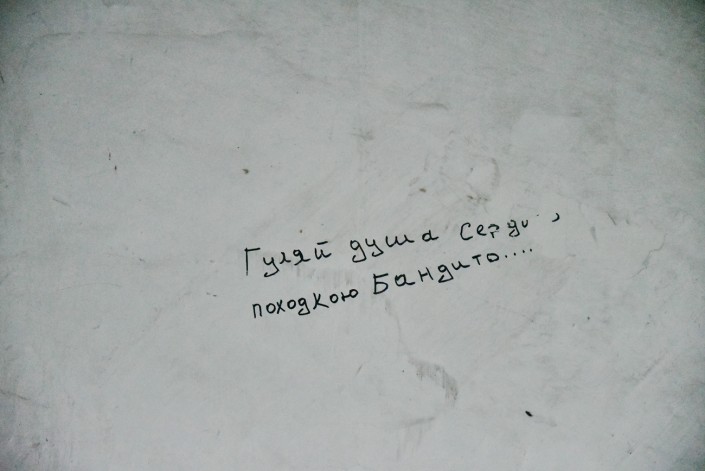 Гуляй душа
походкою Бандито....